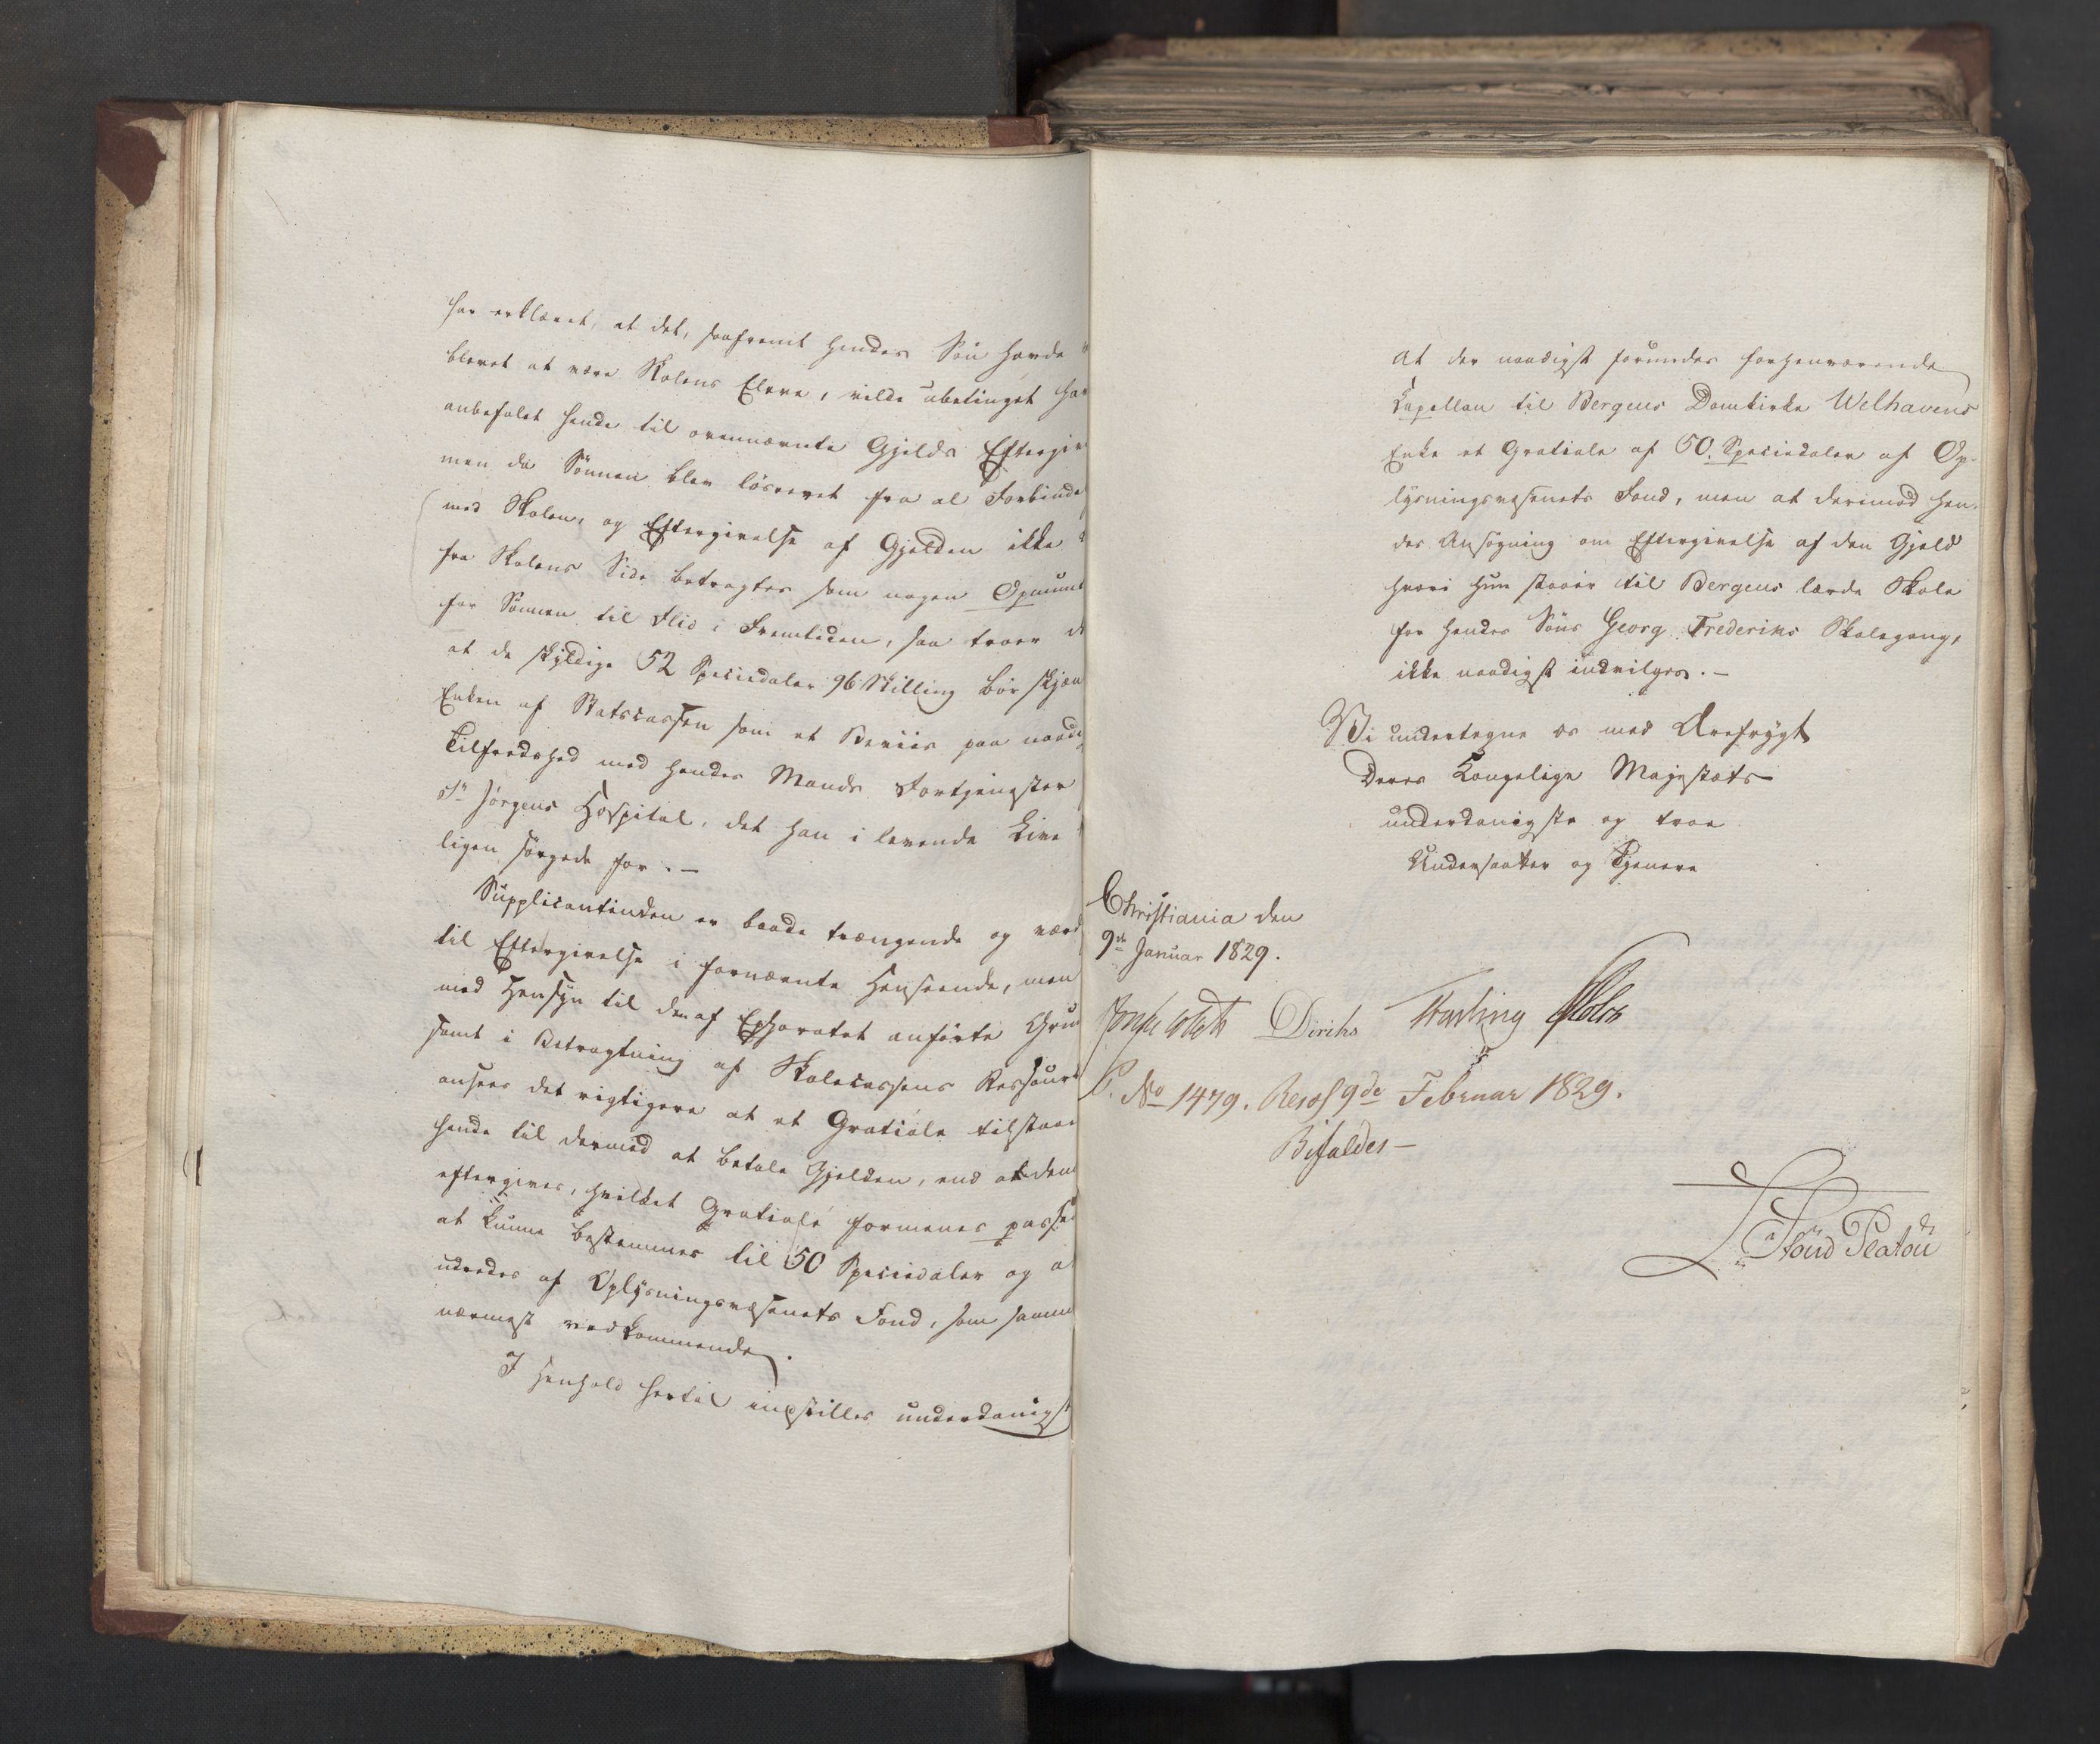 har erklæret, at det, saafremt hendes Søn havde
blevet at være Skolens Elev, vilde ubetinget hav
anbefalet hende til ovennævnte Gjelds Eftergiv
men da Sønnen blev løsrevet fra al Forbinde
med Skolen, og Eftergivelse af Gjelden ikke
fra Skolens Side betragtes som nogen Opmunt
for Sønnen til Flid i Fremtiden, saa troer d
at de skyldige 52 Speciedaler 96 Skilling bør skjæn
Enken af Statscassen som et Beviis paa naadi
Tilfredshed med hendes Mands Fortjenester
St Jørgens Hospital, det han i levende Live
ligen sørgede for. -
Supplicantinden er baade trængende og værd
til Eftergivelse i fornævnte Henseende, men
med Hensyn til den af Ephoratet anførte Grun
samt i Betragtning af Skolecassens Ressourc
ansees det rigtigere at et Gratiale tilstaae
hende til dermed at betale Gjelden, end at den
eftergives, hvilket Gratiale formenes passe
at kunne bestemmes til 50 Speciedaler og a
udredes af Oplysningsvæsenets Fond, som samm
nærmest vedkommende.
I Henhold hertil indstilles underdanigst
At der naadigst forundes forhenværende
Kapellan til Bergens Domkirke Welhavens
Enke et Gratiale af 50. Speciedaler af Op-
lysningsvæsenets Fond, men at derimod hen-
des Ansøgning om Eftergivelse af den Gjeld
hvori hun staaer til Bergens lærde Skole
for hendes Søns Georg Frederiks Skolegang,
ikke naadigst indvilges. -
Vi undertegne os med Ærefrygt
Deres Kongelige Majestæts
underdanigste og troe
Undersaatter og Tjenere
Christiania den
9de Januar 1829.
Jonas Collett Diriks Fasting Holst
C. No 1479. Resol 9de Februar 1829.
Bifaldes -
Stoud Platou